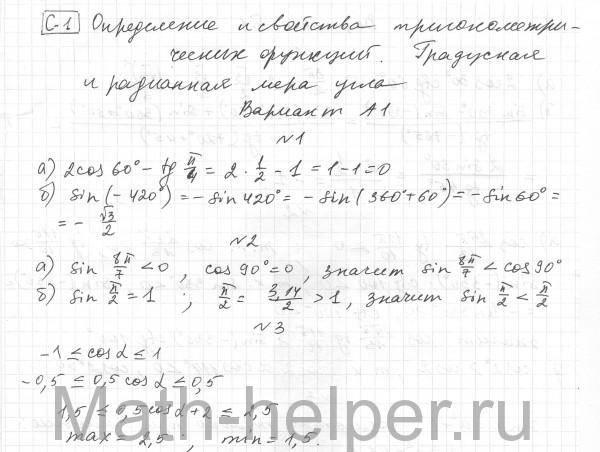 С-1 Определение и свойства тригонометри-
ческих функций. Градусная
и радианная мера угла
Вариант А1
№1
а) 2cos60° - tg π/4 = 2 · 1/2 - 1 = 1-1=0
б) sin(-420°) = -sin420° = -sin(360°+60°) = -sin60° =
= - √3/2
№2
а) sin 8π/7 < 0, cos90°=0, значит sin 8π/7 < cos90°
б) sin π/2 = 1 ; π/2 = 3,14/2 > 1, значит sin π/2 < π/2
№3
-1 ≤ cosα ≤ 1
-0,5 ≤ 0,5cosα ≤ 0,5
1,5 ≤ 0,5cosα+2 ≤ 2,5
max = 2,5 ; min = 1,5.
Math-helper.ru